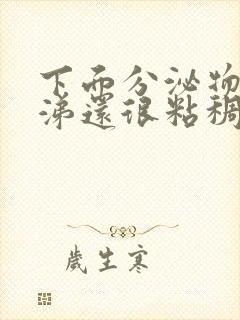 下面分泌物
涕還很粘稠
歲生寒